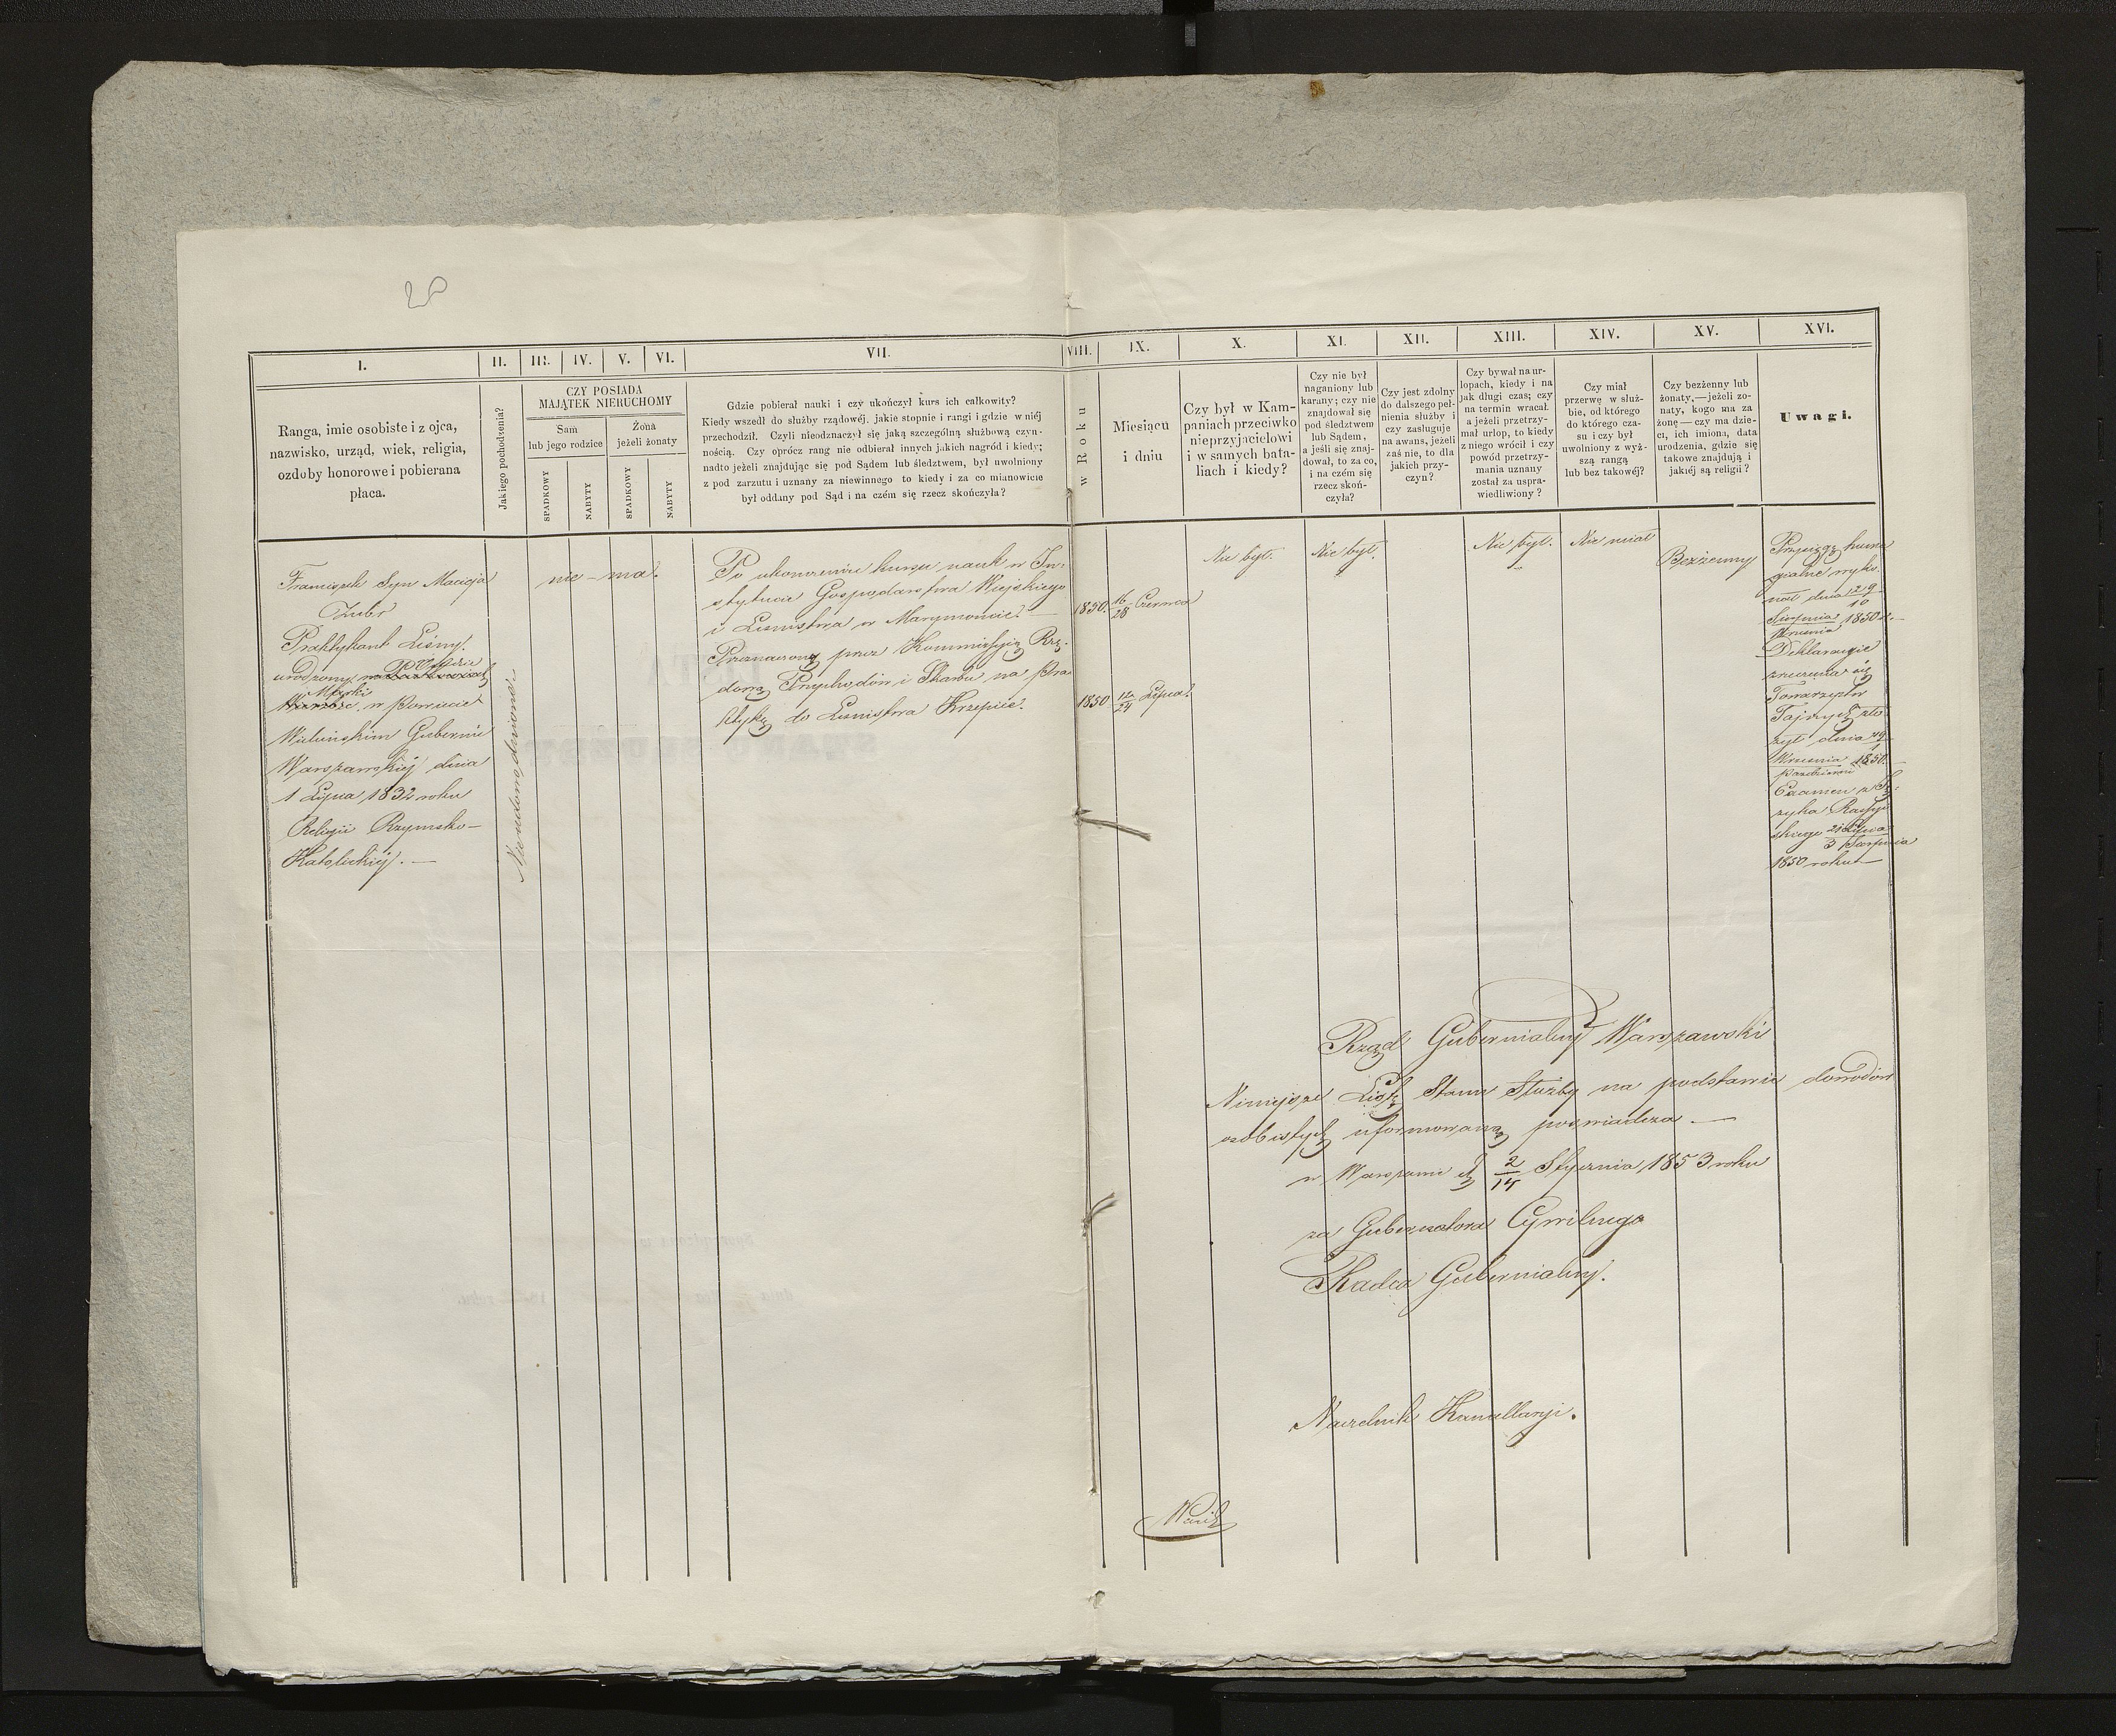 20
I.
II.
III.
IV.
V.
VI.
VII.
VIII.
IX.
X.
XI.
XII.
XIII.
XIV.
XV.
XVI.
Ranga, imie osobiste i z ojca,
nazwisko, urząd, wiek, religia,
ozdoby honorowe i pobierana
płaca.
Jakiego pochodzenia?
CZY POSIADA
MAJĄTEK NIERUCHOMY
Sam
lub jego rodzice
Żona
jeżeli żonaty
SPADKOWY
NABYTY
SPADKOWY
NABYTY
Gdzie pobierał nauki i czy ukończył kurs ich całkowity?
Kiedy wszedł do służby rządowéj, jakie stopnie i rangi i gdzie w niéj
przechodził. Czyli nieodznaczył się jaką szczególną służbową czyn-
nością. Czy oprócz rang nie odbierał innych jakich nagród i kiedy;
nadto jeżeli znajdując się pod Sądem lub śledztwem, był uwolniony
z pod zarzutu i uznany za niewinnego to kiedy i za co mianowicie
był oddany pod Sąd i na czém się rzecz skończyła?
w Roku
Miesiącu
i dniu
Czy był w Kam-
paniach przeciwko
nieprzyjacielowi
i w samych bata-
liach i kiedy?
Czy nie był
naganiony lub
karany; czy nie
znajdował się
pod śledztwem
lub Sądem,
a jeśli się znaj-
dował, to za co,
i na czém się
rzecz skoń-
czyła?
Czy jest zdolny
do dalszego peł-
nienia służby i
czy zasługuje
na awans, jeżeli
zaś nie, to dla
jakich przy-
czyn?
Czy bywał na ur-
lopach, kiedy i na
jak długi czas; czy
na termin wracał.
a jeżeli przetrzy-
mał urlop, to kiedy
z niego wrócił i czy
powód przetrzy-
mania uznany
został za uspra-
wiedliwiony?
Czy miał
przerwę w służ-
bie, od którego
do którego cza-
su i czy był
uwolniony z wyż-
szą rangą
lub bez takowéj?
Czy bezżenny lub
żonaty,—jeżeli żo-
naty, kogo ma za
żonę — czy ma dzie-
ci, ich imiona, data
urodzenia, gdzie się
takowe znajdują i
jakiéj są religii?
Uwagi.
Franciszek Syn Macieja
Zubr
Praktykant Leśny.
urodzony
w Powiecie
Wieluńskim Gubernii
Warszawskiéj dnia
1 Lipca 1832 roku
Religii Rzymsko-
Katolickiéj. —
Niewiadomo
nie - ma.
Po ukończeniu kursu nauk w In-
stytucie Gospodarstwa Wiejskiego
i Leśnictwa w Marymoncie. —
Przeznaczony przez Kommissyią Rzą-
dową Przychodów i Skarbu na Pra-
ktykę do Leśnictwa Krzepice.
1850. 16/28 Czerwca
1850 12/24 Lipca.
Nie był.
Nie był.
Nie był.
Nie miał
Bezżenny
Przysięgę homa
gialną wyko-
nał dnia 29/10
Sierpnia/Września 1850 r. —
Deklaracyie
znoszenia się
Towarzystw
Tajnych zło-
żył dnia 19/1
Września/Października 1850.
Examen z Ję-
zyka Rossyj
skiego 21 Lipca/3 Sierpnia
1850 roku —
Rząd Gubernialny Warszawski
Niniejszą Listę Stanu Służby na podstawie dowodów
osobistych uformowaną poświadcza —
w Warszawie d. 2/14 Stycznia 1853 roku
za Gubernatora Cywilnego
Radca Gubernialny.
Naczelnik Kancellaryi.